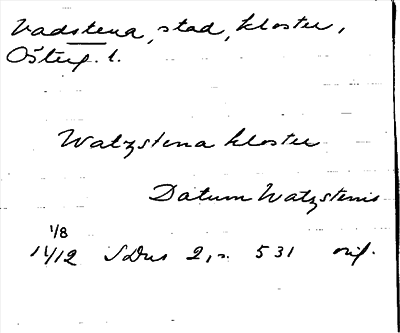 Vadstena, stad, kloster,
Österg. l.
Watzstena kloster
Datum Watzstenis
1/8
1412 SDns 2, n. 531 orig.